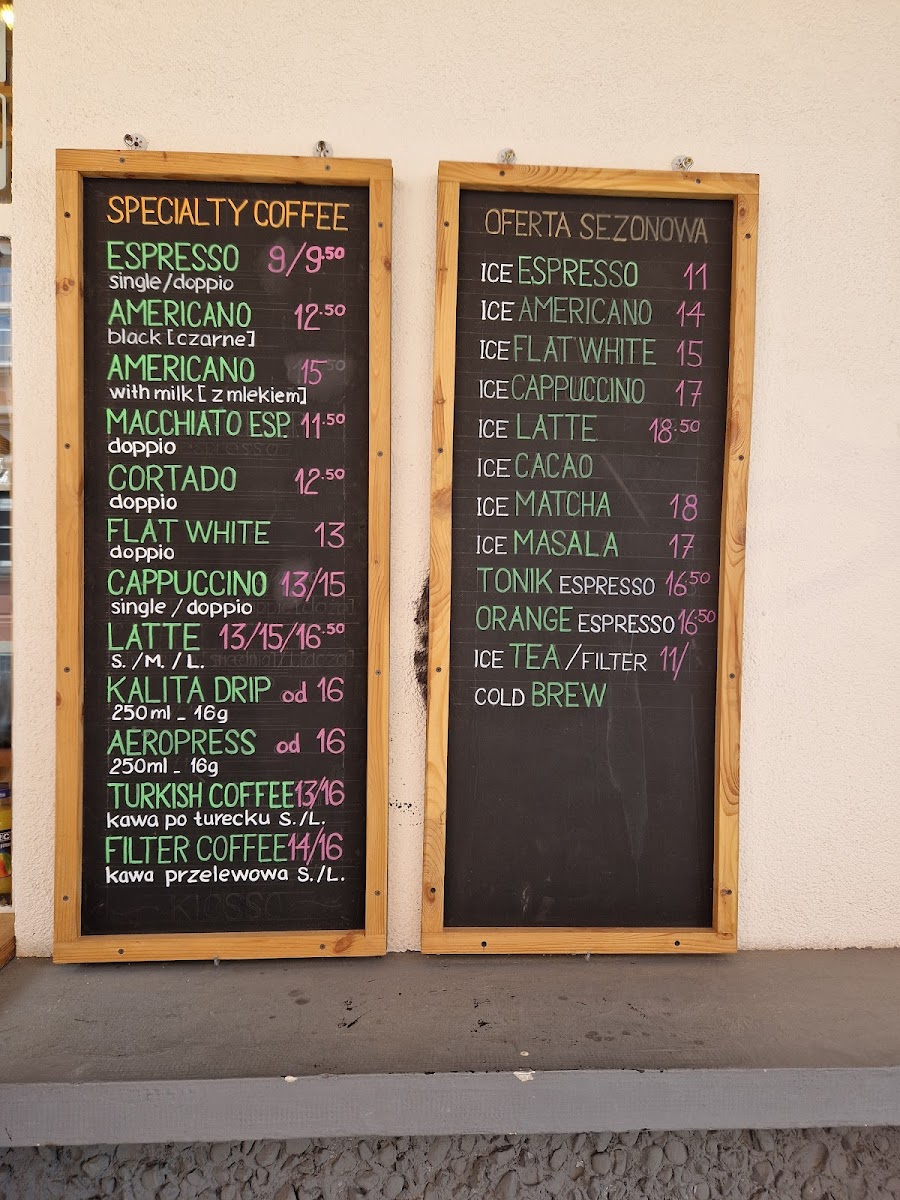 SPECIALTY COFFEE
ESPRESSO 9/9.50
single/doppio
AMERICANO 12.50
black [czarne]
AMERICANO 15
with milk [z mlekiem]
MACCHIATO ESP. 11.50
doppio
CORTADO 12.50
doppio
FLAT WHITE 13
doppio
CAPPUCCINO 13/15
single / doppio
LATTE 13/15/16.50
S. /M. / L.
KALITA DRIP od 16
250ml - 16g
AEROPRESS od 16
250ml - 16g
TURKISH COFFEE 13/16
kawa po turecku S./L.
FILTER COFFEE 14/16
kawa przelewowa S./L.
OFERTA SEZONOWA
ICE ESPRESSO 11
ICE AMERICANO 14
ICE FLAT WHITE 15
ICE CAPPUCCINO 17
ICE LATTE 18.50
ICE CACAO
ICE MATCHA 18
ICE MASALA 17
TONIK ESPRESSO 16.50
ORANGE ESPRESSO 16.50
ICE TEA /FILTER 11/
COLD BREW